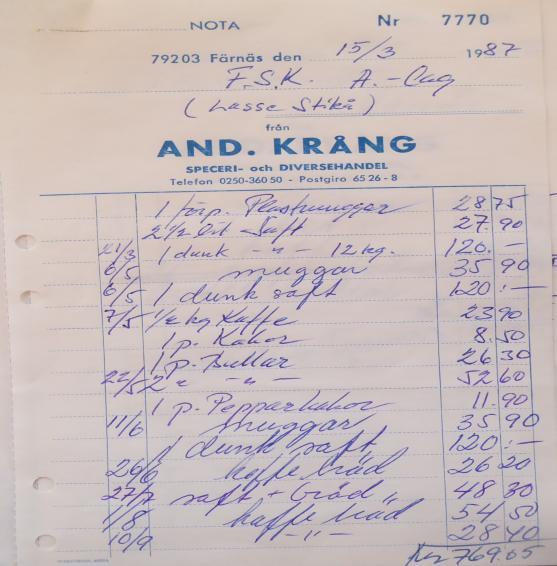 NOTA Nr 7770
79203 Färnäs den 15/3 1987
F.S.K. A.-Cag
(Lasse Stikå)
från
AND. KRÅNG
SPECERI- och DIVERSEHANDEL
Telefon 0250-360 50 - Postgiro 65 26 - 8
1 förp. Plastmuggar 28 75
2 1/2 lit Saft 27.90
21/3 1 dunk -"- 12 kg. 120.-
6/5 muggar 35 90
6/5 1 dunk saft 120:-
7/5 1/2 kg Kaffe 23 90
1 p. Kakor 8.50
1 p. Bullar 26 30
22/5 2 " -"- 52 60
1 p. Pepparkakor 11.90
11/6 muggar 35 90
1 dunk saft 120:-
26/6 kaffebröd 26 20
27/7 saft + bröd " 48 30
1/8 kaffebröd 54 50
10/9 -"- 28 40
Kr 769.05